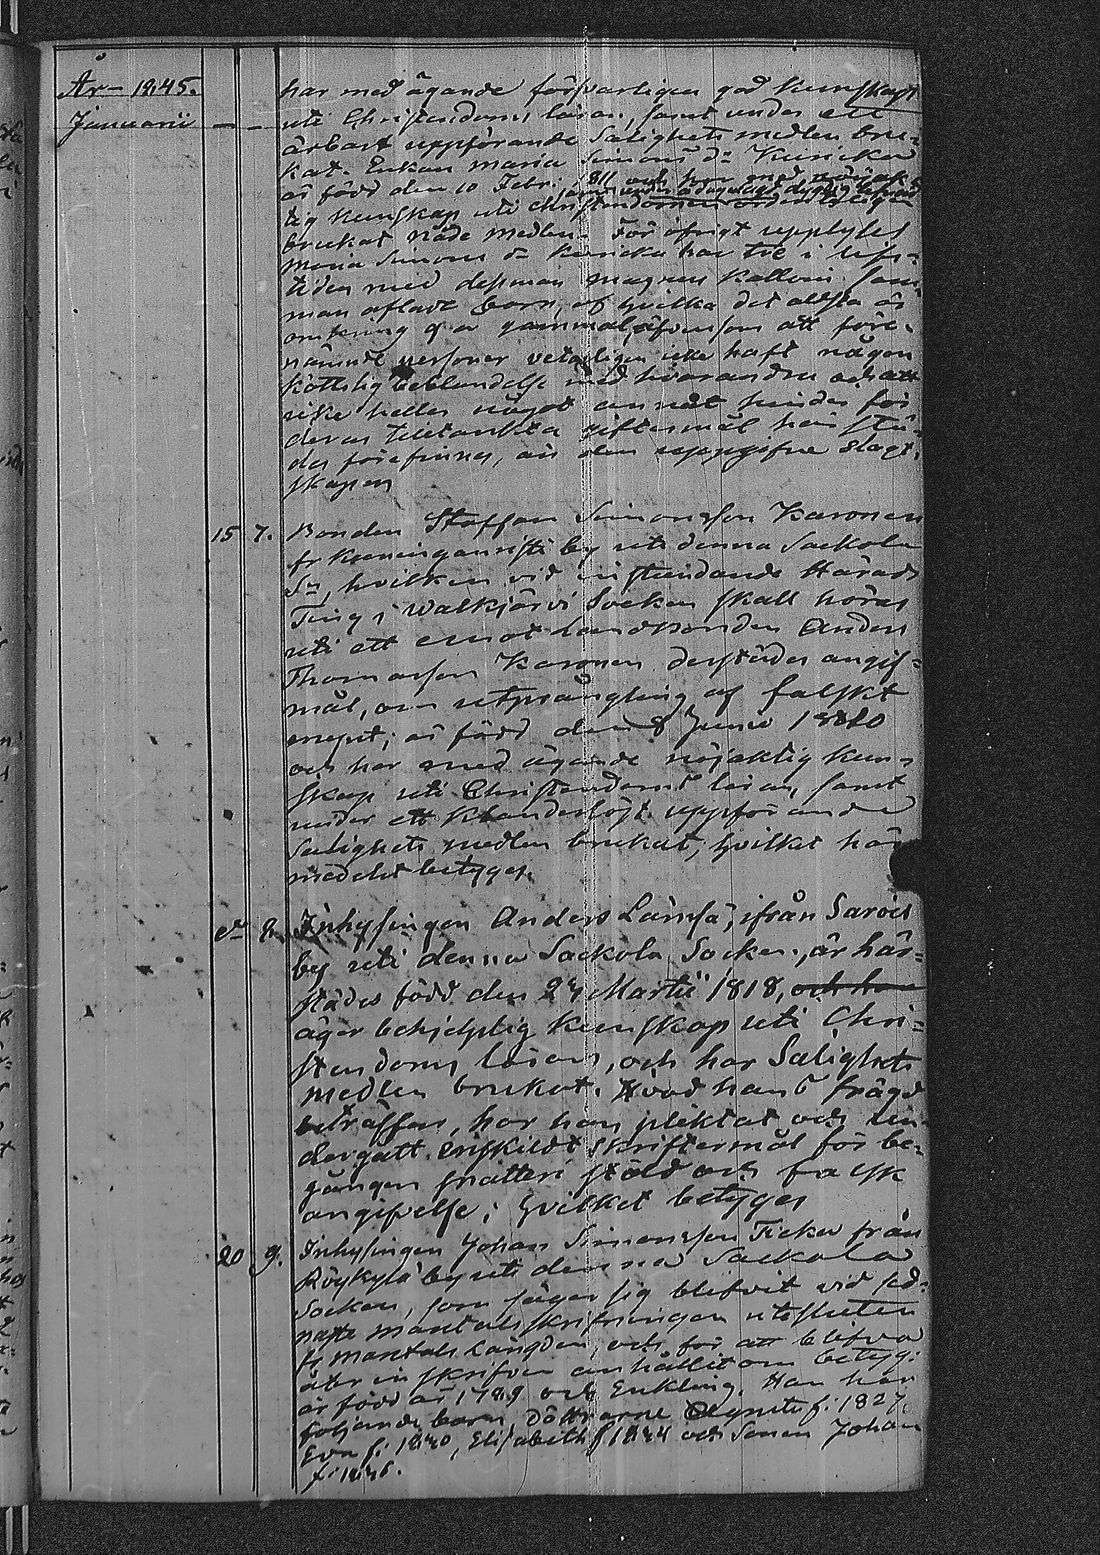 År 1845.
Januarii
har med ägande försvarligen god kunskap
uti Christendoms läran, samt under ett
ärbart uppförande Salighets medlen bru-
kat. Enkan Maria Simons dr Kuricka
är född den 10 Febr. 1811 och har med
lig kunskap uti Christendomen
brukat Nåde medlen. För öfrigt upplyses
Maria Simons dr Kuricka har tre i lifs-
tiden med dess man Magnus Kalloin sam-
man aflade barn, af hvilka det äldsta är
omkring 9 år gammal, äfvensom att före-
nämnde personer veterligen icke haft någon
köttslig beblandelse med hvarandra och att
icke heller något annat hinder för
deras tilltänkta giftermål här stä-
des förefinnes, än den uppgifna slägt-
skapen
15 7. Bonden Staffan Simonsson Karonen
fr Koeninganristi by uti denna Sackola
Sn, hvilken vid instundande Härads
Ting i Walkjärvi Socken skall höras
uti ett emot Landbonden Anders
Thomasson Karonen derstädes angif-
mål, om utprångling af falskt
mynt; är född den 8 Junii 1820
och har med ägande nöjaktig kun-
skap uti Christendoms läran, samt
under ett klanderlöst uppförande
Salighets medlen brukat, hvilket här
medelst betyges.
dn 8. Inhysingen Anders Lämsä, ifrån Sarois
by uti denna Sackola Socken, är här-
städes född den 24 Martii 1818, och har
äger behjelplig kunskap uti Chri-
stendoms läran, och har Salighets
medlen brukat. Hvad hans frägd
beträffar, har han pliktat och un-
dergått enskildt skriftermål för be-
gången snatteri stöld och falsk
angifvelse; hvilket betyges
20 9. Inhysingen Johan Simonsson Ticka från
Röykylä by uti denna Sackola
Socken, som säger sig blifvit vid sed-
naste Mantals skrifningen utesluten
fr Mantals Längden, och för att blifva
åter inskrifven anhållit om betyg.
är född år 1789 och Enkling. Han har
följande barn, Döttrarne Agneta f. 1827,
Eva f. 1830, Elisabeth f 1834 och Sonen Johan
f. 1836.